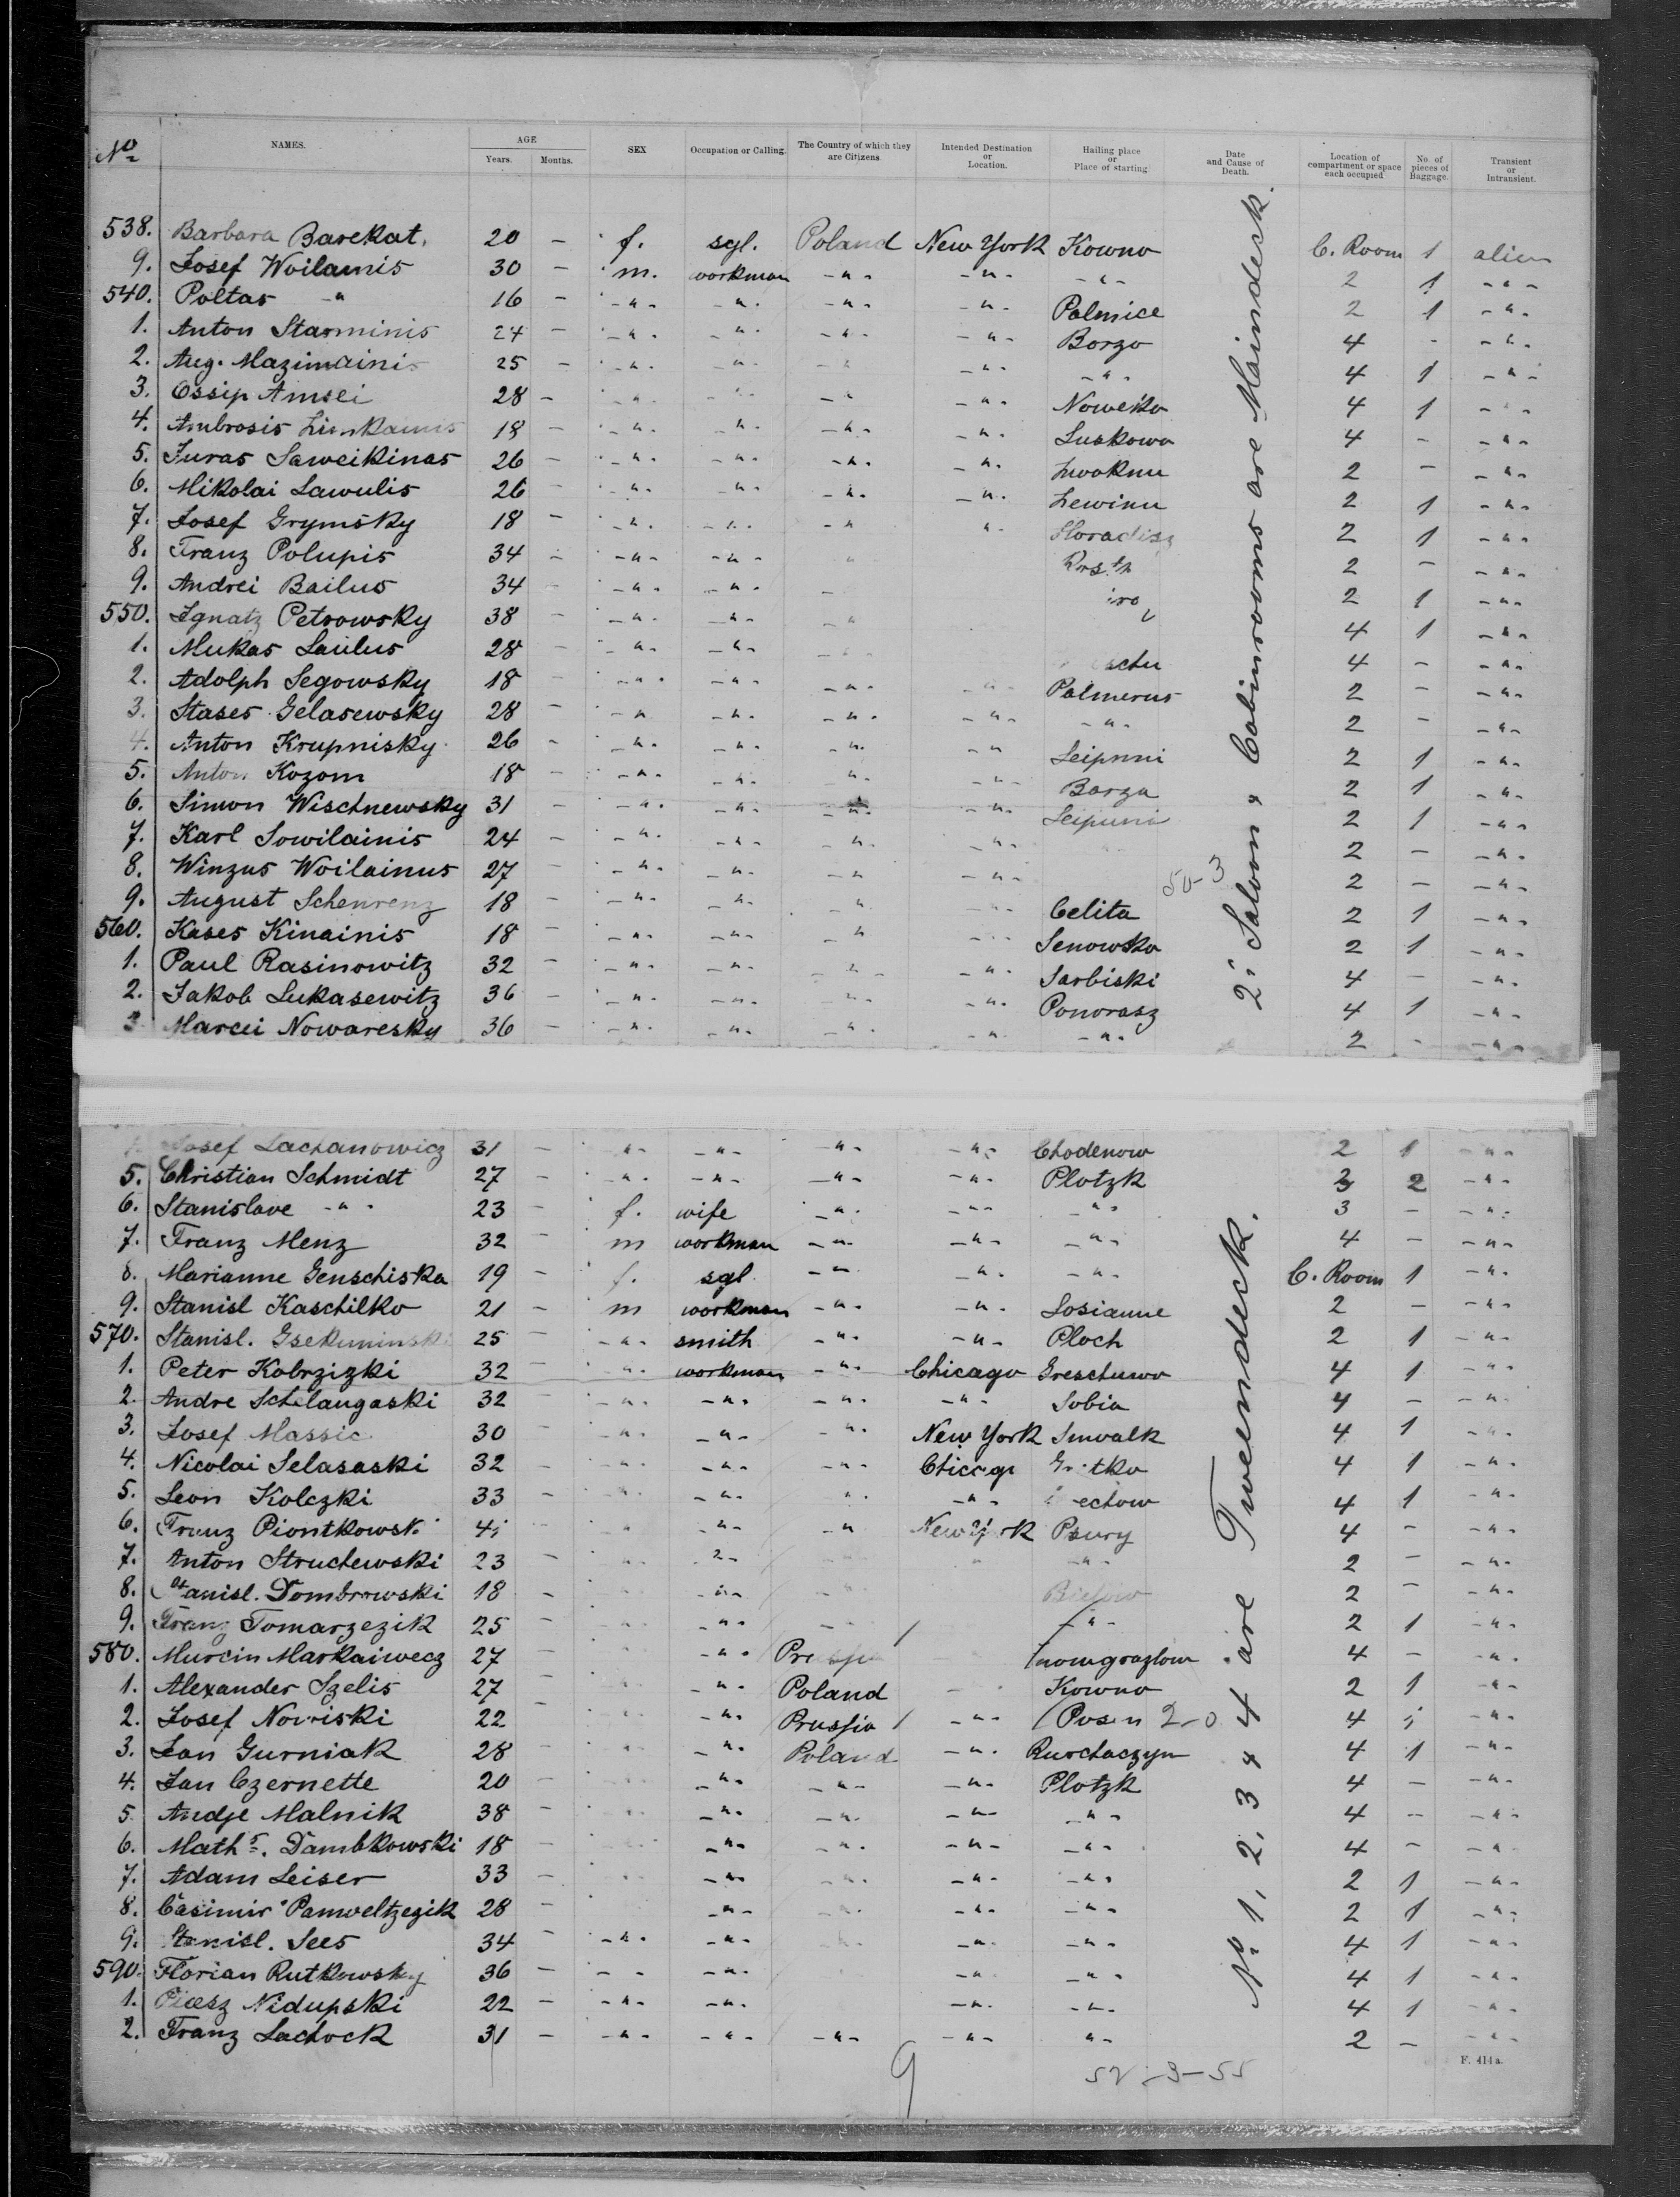 No NAMES. AGE Years. Months. SEX Occupation or Calling. The Country of which they are Citizens. Intended Destination or Location. Hailing place or Place of starting Date and Cause of Death. Location of compartment or space each occupied No. of pieces of Baggage. Transient or Intransient.
538. Barbara Barekat. 20 - f. sgl. Poland New York Kowno C. Room 1 alien
9. Josef Woilamis 30 - m. workman -"- -"- -"- 2 1 -"-
540. Poltas -" 16 - -"- -"- -"- -"- Palmice 2 1 -"-
1. Anton Starminis 24 - -"- -"- -"- -"- Borzo 4 - -"-
2. Aug. Mazimainis 25 - -"- -"- -"- -"- -"- 4 1 -"-
3. Ossip Amsei 28 - -"- -"- -"- -"- Noweko 4 1 -"-
4. Ambrosis 18 - -"- -"- -"- -"- Luskowo 4 - -"-
5. Juras Saweikinas 26 - -"- -"- -"- -"- 2 - -"-
6. Mikolai Lawulis 26 - -"- -"- -"- -"- Lewinu 2 1 -"-
7. Josef Grymsky 18 - -"- -"- -" " Horadisz 2 1 -"-
8. Franz Polupis 34 - -"- -"- 2 - -"-
9. Andrei Bailus 34 - -"- -"- 2 1 -"-
550. Ignatz Petrowsky 38 - -"- -"- -" 4 1 -"-
1. Mukas Laulus 28 - -"- -"- 4 - -"-
2. Adolph Segowsky 18 - -"- -"- -"- -"- Palmerus 2 - -"-
3. Stases Gelasewsky 28 - -" -"- -"- -"- -"- 2 - -"-
4. Anton Krupnisky 26 - -"- -"- -"- -"- Leipuni 2 1 -"-
5. Anton Kozom 18 - -"- -"- -"- -"- Barza 2 1 -"-
6. Simon Wischnewsky 31 - -"- -"- -"- -"- Leipuni 2 1 -"-
7. Karl Sowilainis 24 - -"- -"- -"- -"- 2 - -"-
8. Winzus Woilainus 27 - -"- -"- -"- -"- 2 - -"-
50-3
9. August Schenrenz 18 - -"- -"- -" -"- Celita 2 1 -"-
560. Kases Kinainis 18 - -"- -"- -" -"- Senowsko 2 1 -"-
1. Paul Rasinowitz 32 - -"- -"- -"- -"- Sarbiski 4 - -"-
2. Jakob Lukasewitz 36 - -"- -"- -"- -"- Ponorasz 4 1 -"-
3. Marcei Nowaresky 36 - -"- -"- -"- -"- -"- 2 - -"-
2: Saloon & Cabinrooms are Maindeck.
Josef Lachanowicz 31 - "- -"- -"- -"- Chodenow 2 1 -"-
5. Christian Schmidt 27 - -"- -"- -"- -"- Plotzk 3 2 -"-
6. Stanislave -"- 23 - f. wife -"- -"- -"- 3 - -"-
7. Franz Menz 32 - m workman -"- -"- -"- 4 - -"-
8. Marianne Genschiska 19 - f. sgl -"- -"- -"- C. Room 1 -"-
9. Stanisl Kaschilko 21 - m workman -"- -"- Losianne 2 - -"-
570. Stanisl. Gsekuminski 25 - -"- smith -"- -"- Ploch 2 1 -"-
1. Peter Kobrzizki 32 - -"- workman -"- Chicago Greschuwo 4 1 -"-
2. Andre Schelangaski 32 - -"- -"- -"- -"- Sobia 4 - -"-
3. Josef Massic 30 - -"- -"- -"- New York Suwalk 4 1 -"-
4. Nicolai Selasaski 32 - -"- -"- -"- Chicago 4 1 -"-
5. Leon Kolczki 33 - -"- -"- "- -"- 4 1 -"-
6. Franz Piontkowski - -"- -" New York Psury 4 - -"-
7. Anton Struchewski 23 - -"- -"- -"- 2 - -"-
8. Stanisl. Dombrowski 18 - -"- 2 - -"-
9. Franz Tomarzezik 25 - -"- -"- 2 1 -"-
580. Murcin Markaiwecz 27 - -"- Prussia Inowgrazlow 4 - -"-
1. Alexander Szelis 27 - -"- Poland Kowno 2 1 -"-
2. Josef Nowiski 22 - -"- Prussia -"- Posen 2-0 4 1 -"-
3. Jan Gurniak 28 - -"- Poland -"- Rurchaczyn 4 1 -"-
4. Jan Czernette 20 - -"- -"- -"- Plotzk 4 - -"-
5. Andje Malnik 38 - -"- -"- -"- -"- 4 - -"-
6. Maths. Dambkowski 18 - -"- -"- -"- -"- 4 - -"-
7. Adam Leiser 33 - -"- -"- -"- -"- 2 1 -"-
8. Casimir Pamweltzezik 28 - -"- -"- -"- -"- 2 1 -"-
9. Stanisl. Sees 34 - -"- -"- -"- -"- -"- 4 1 -"-
590. Florian Rutkowsky 36 - - - -"- -"- -"- 4 1 -"-
1. Nidupski 22 - -"- -"- -"- -"- 4 1 -"-
2. Franz Lachock 31 - -"- -"- -"- -"- "- 2 - -"-
No 1, 2, 3 & 4 are Tweendeck.
F. 414a.
9 52-3-55